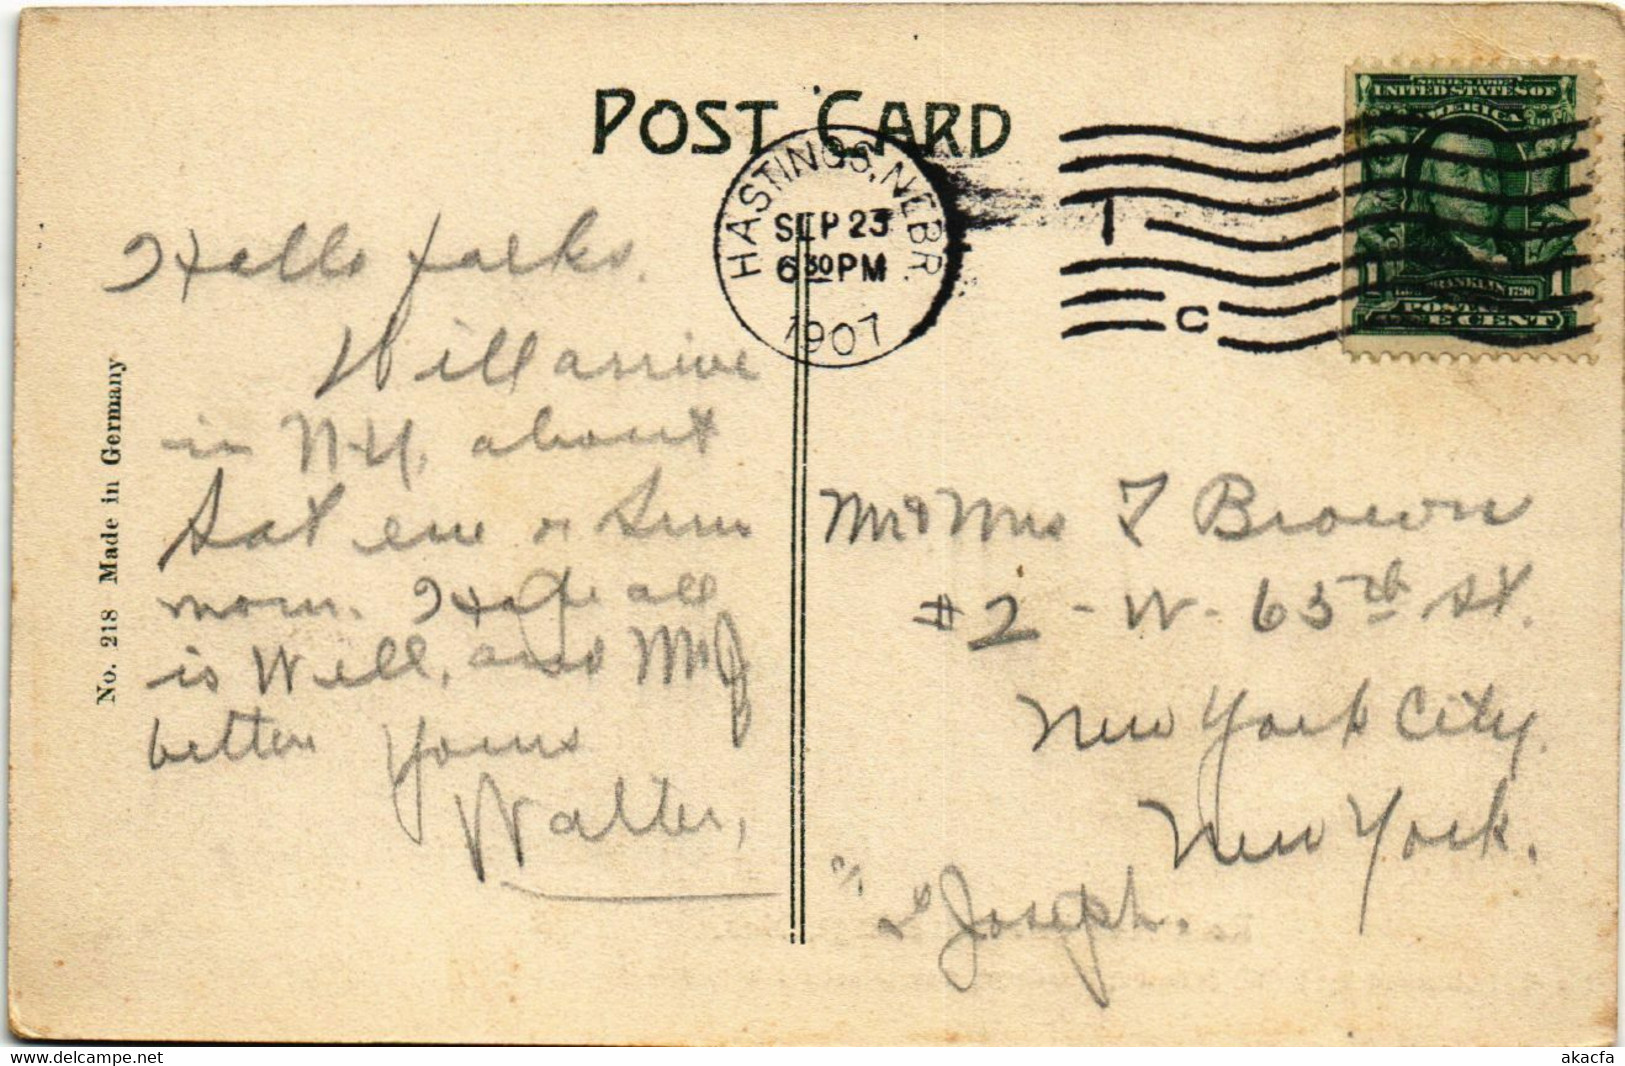 POST CARD
HASTINGS, NEBR.
SEP 23
6 30 PM
1907
C
SERIES 1902
UNITED STATES OF
AMERICA
FRANKLIN 1790
POSTAGE
1 1
ONE CENT
No. 218 Made in Germany
Hello folks.
Will arrive
in N.Y. about
Sat eve or Sun
morn. Hope all
is Well, and
better Yours
Walter,
Mr & Mrs F Brown
#2 - W - 65th St.
New York City.
New York.
& Joseph.
delcampe.net
akacfa